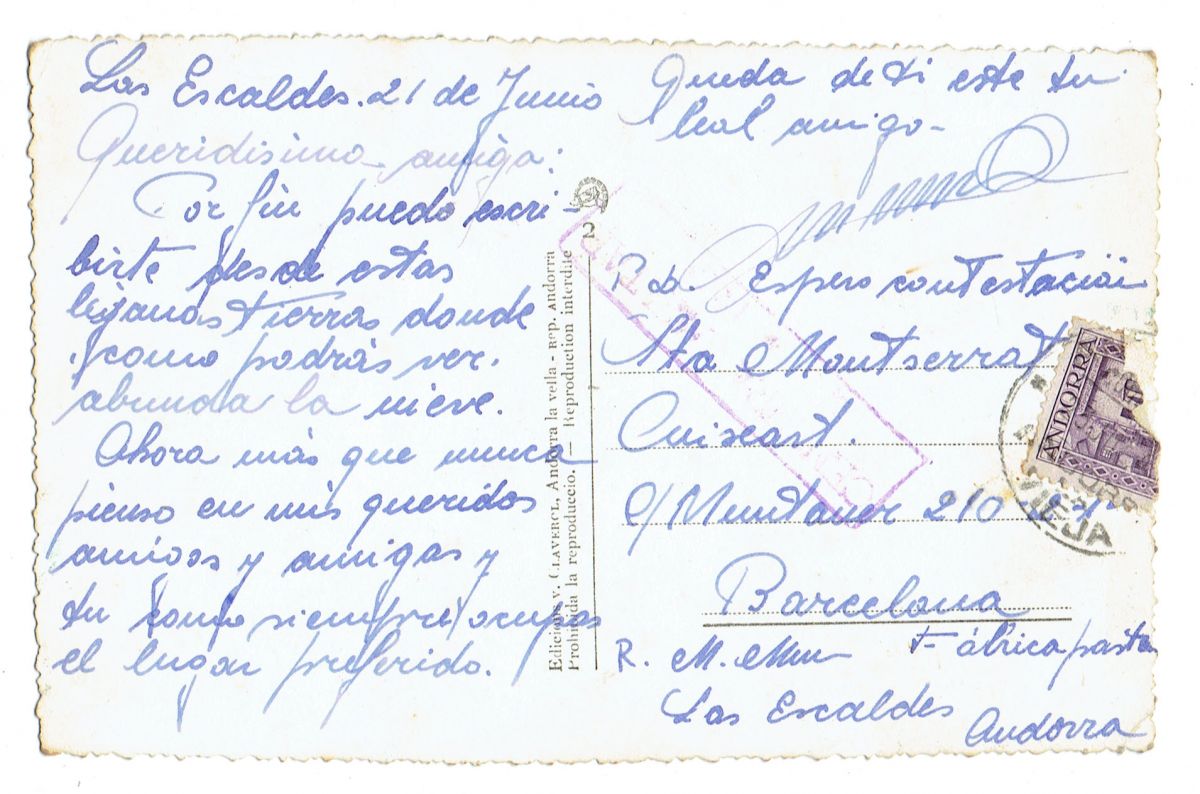 Las Escaldes. 21 de Junio
Queridisima amiga:
Por fin puedo escri-
birte desde estas
lejanas tierras donde
como podrás ver.
abunda la nieve.
Ahora más que nunca
pienso en mis queridos
amigos y amigas y
tu como siempre ocupas
el lugar preferido.
Queda de ti este tu
leal amigo-
P. D. Espero contestación
Sta Montserrat
c/ Muntaner 210
Barcelona
R. M. Fábrica pasta
Las Escaldes
Andorra
2
Edicions V. CLAVEROL, Andorra la vella - REP. Andorra
Prohibida la reproduccio. — Reproduction interdite
ANDORRA
VIEJA